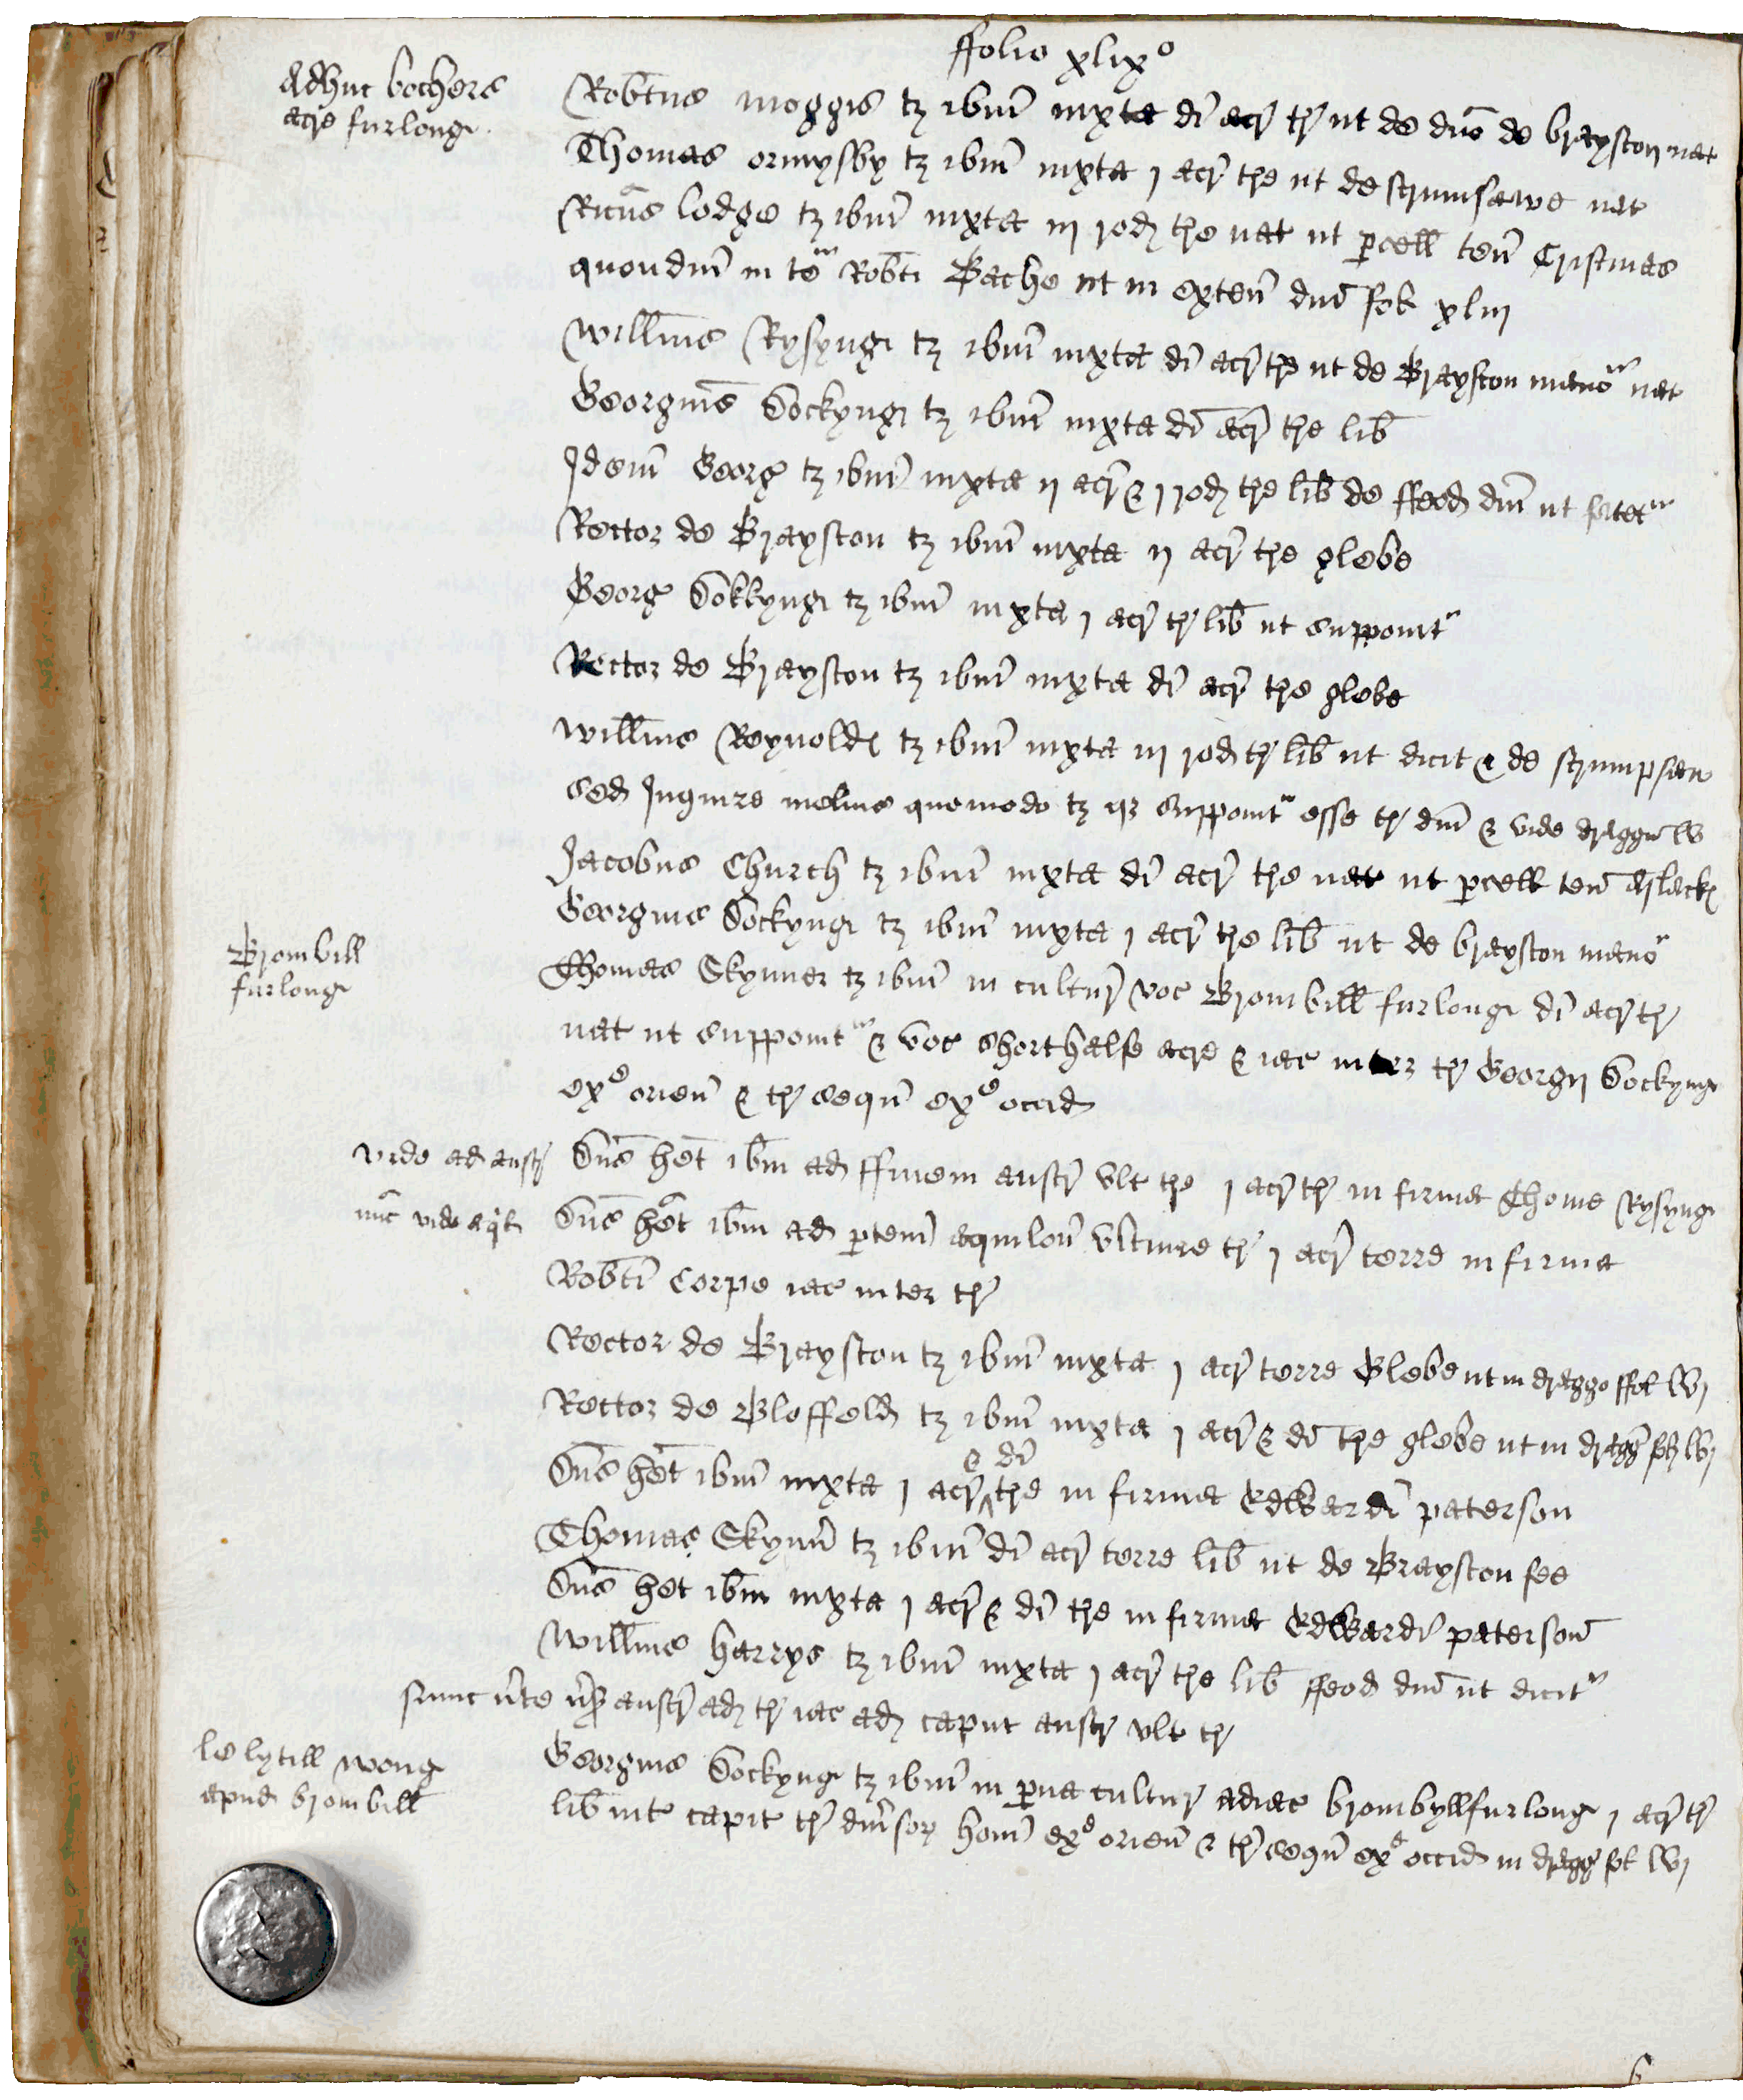 ffolio xlixº
Adhuc bochers
acre furlong
Robtus moggis tz ibm iuxta di acr tre ut de duo de brayston nat
Thomas ormysby tz ibm iuxta j acr tre ut de scrumsawe nat
Ricus lodge tz ibm iuxta iij rod tre nat ut pcell ten Cristmas
quondm in te Robti Bache ut in exten dni fol xliij
Willms Rysyng tz ibm iuxta di acr tre ut de Brayston mano nat
Georgius Sockyng tz ibm iuxta di acr tre lib
Idem Georg tz ibm iuxta ij acr & j rod tre lib de ffeod dni ut fatet
Rector de Brayston tz ibm iuxta ij acr tre glebe
Georg Sokkyng tz ibm iuxta j acr tr lib ut supponit
Rector de Brayston tz ibm iuxta di acr tre glebe
Willms Reynold tz ibm iuxta iij rod tr lib ut dicit & de scrumpsaw
sed Inquire melius quomodo tz qz supponit esse tr dni & vide dragg lv
Jacobus Church tz ibm iuxta di acr tre nat ut pcell ten
Georgius Sockyng tz ibm iuxta j acr tre lib ut de brayston mano
Brombill
furlong
Thomas Skynner tz ibm in cultur voc Brombill furlong di acr tr
nat ut supponit & voc Shorthalfe acre & iac inter tr Georgij Sockyng
ex orien & tr sequ ex occid
vide ad austr Dns het ibm ad ffinem austr ult tre j acr tr in firma Thome Rysyng
nuc vide aql Dns het ibm ad ptem aquilon ultime tr j acr terre in firma
Robti Corpe iac inter tr
Rector de Brayston tz ibm iuxta j acr terre Glebe ut in dragge ffol lvj
Rector de Bloffeld tz ibm iuxta j acr & di tre glebe ut in dragg fol lvj
Dns het ibm iuxta j acr & di tre in firma Edwardi paterson
Thomas Skynn tz ibm di acr terre lib ut de Brayston fee
Dns het ibm iuxta j acr & di tre in firma Edwardi paterson
Willms harrys tz ibm iuxta j acr tre lib ffeod dni ut dicit
austr ad tr iac ad caput austr ult tr
le lytill wong
apud brombill
Georgius Sockyng tz ibm in pua cultur adiac brombyllfurlong j acr tr
lib int capit tr dni hom ex orien & tr sequ ex occid in dragg fol lvj